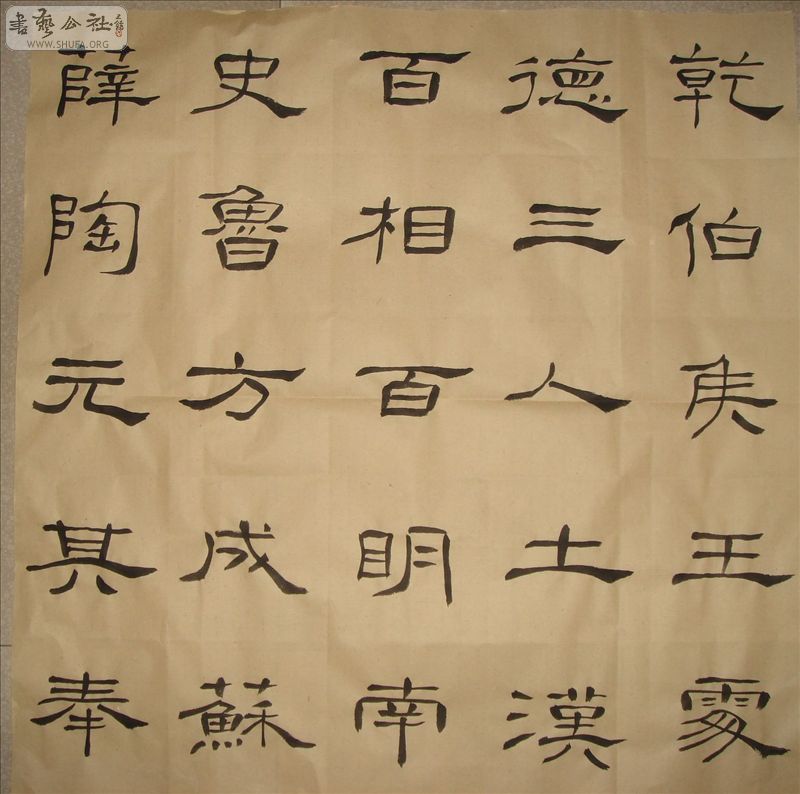 書藝公社
WWW.SHUFA.ORG
乾伯矦王
德三人土漢
百相百明南
史魯方成蘇
薛陶元其奉